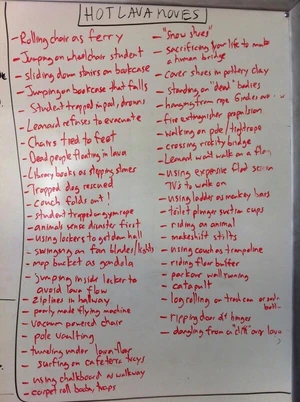 HOT LAVA MOVES
- Rolling chair as ferry
- Jumping on wheelchair student
- sliding down stairs on bookcase
- Jumping on bookcase that falls
- Student trapped in pool, drowns
- Leonard refuses to evacuate
- Chairs tied to feet
- Dead people floating in lava
- Library books as stepping stones
- Trapped dog rescued
- couch folds out!
- student trapped on gym rope
- animals sense disaster first
- using lockers to get down hall
- swinging on fan blades/lights
- mop bucket as gondola
- jumping inside locker to
avoid lava flow
- ziplines in hallway
- poorly made flying machine
- vacuum powered chair
- pole vaulting
- tunneling under floor
- surfing on cafeteria trays
- using chalkboard as walkway
- carpet roll booby traps
- "snow shoes"
- sacrificing your life to make
a human bridge
- cover shoes in pottery clay
- standing on "dead" bodies
- hanging from rope
- fire extinguisher propulsion
- walking on pole/tightrope
- crossing rickety bridge
- Leonard won't walk on a flag
- using expensive flat screen
TV's to walk on
- using ladder as monkey bars
- toilet plunger suction cups
- riding on animal
- makeshift stilts
- using couch as trampoline
- riding floor buffer
- parkour wall running
- catapult
- log rolling on trash can or
ball
- ripping door off hinges
- dangling from a "cliff" over lava